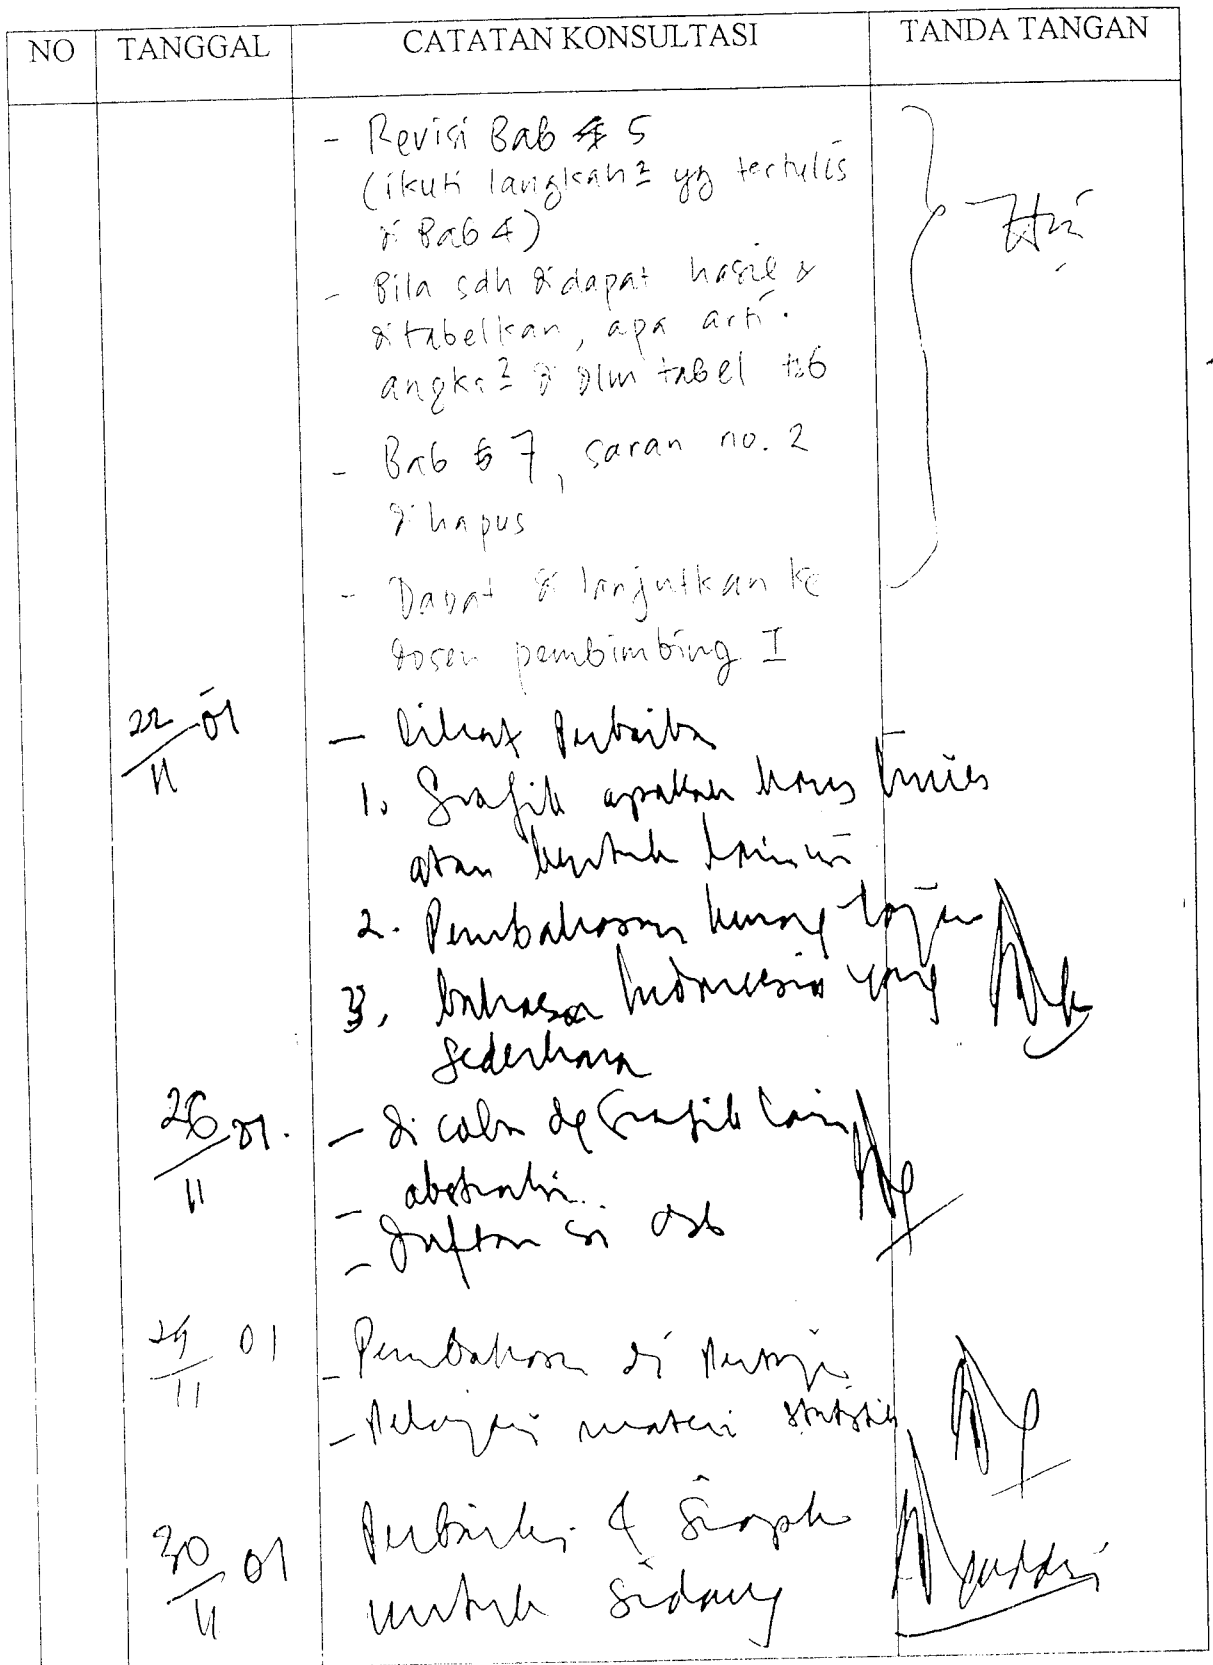 NO TANGGAL CATATAN KONSULTASI TANDA TANGAN
- Revisi Bab 5
(ikuti langkah2 yg tertulis
di Bab 4)
- Bila sdh didapat hasil &
ditabelkan, apa arti
angka2 di dlm tabel tsb
- Bab 7, saran no. 2
dihapus
- Dapat dilanjutkan ke
dosen pembimbing I
22/11 01 - lihat
1. Grafik apakah harus
atau bentuk
2. Pembahasan kurang
3. bahasa Indonesia yang
sederhana
26/11 01. - di coba dg Grafik lain
- abstrak
- Daftar isi dsb
29/11 01 - Pembahasan di
- Pelajari materi statistik
30/11 01 Perbaiki & Siapkan
untuk Sidang